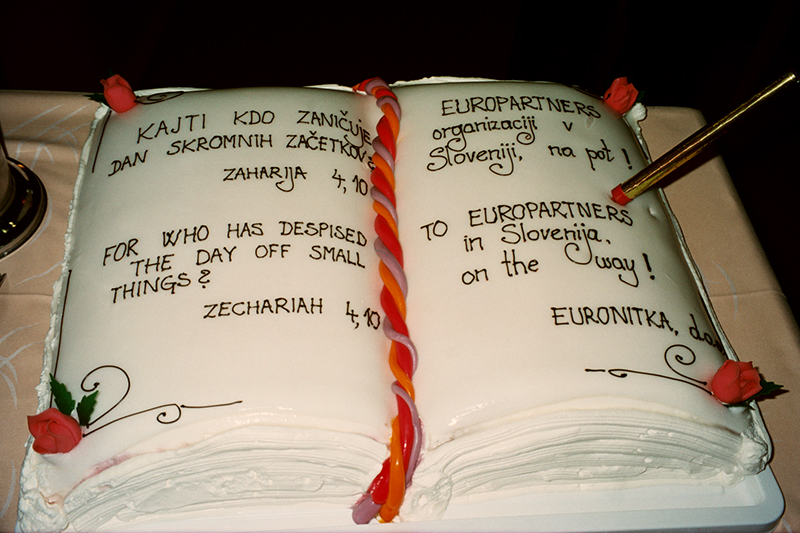 KAJTI KDO ZANIČUJE
DAN SKROMNIH ZAČETKOV?
ZAHARIJA 4,10
FOR WHO HAS DESPISED
THE DAY OFF SMALL
THINGS?
ZECHARIAH 4,10
EUROPARTNERS
organizaciji v
Sloveniji, na pot!
TO EUROPARTNERS
in Slovenija,
on the way!
EURONITKA,